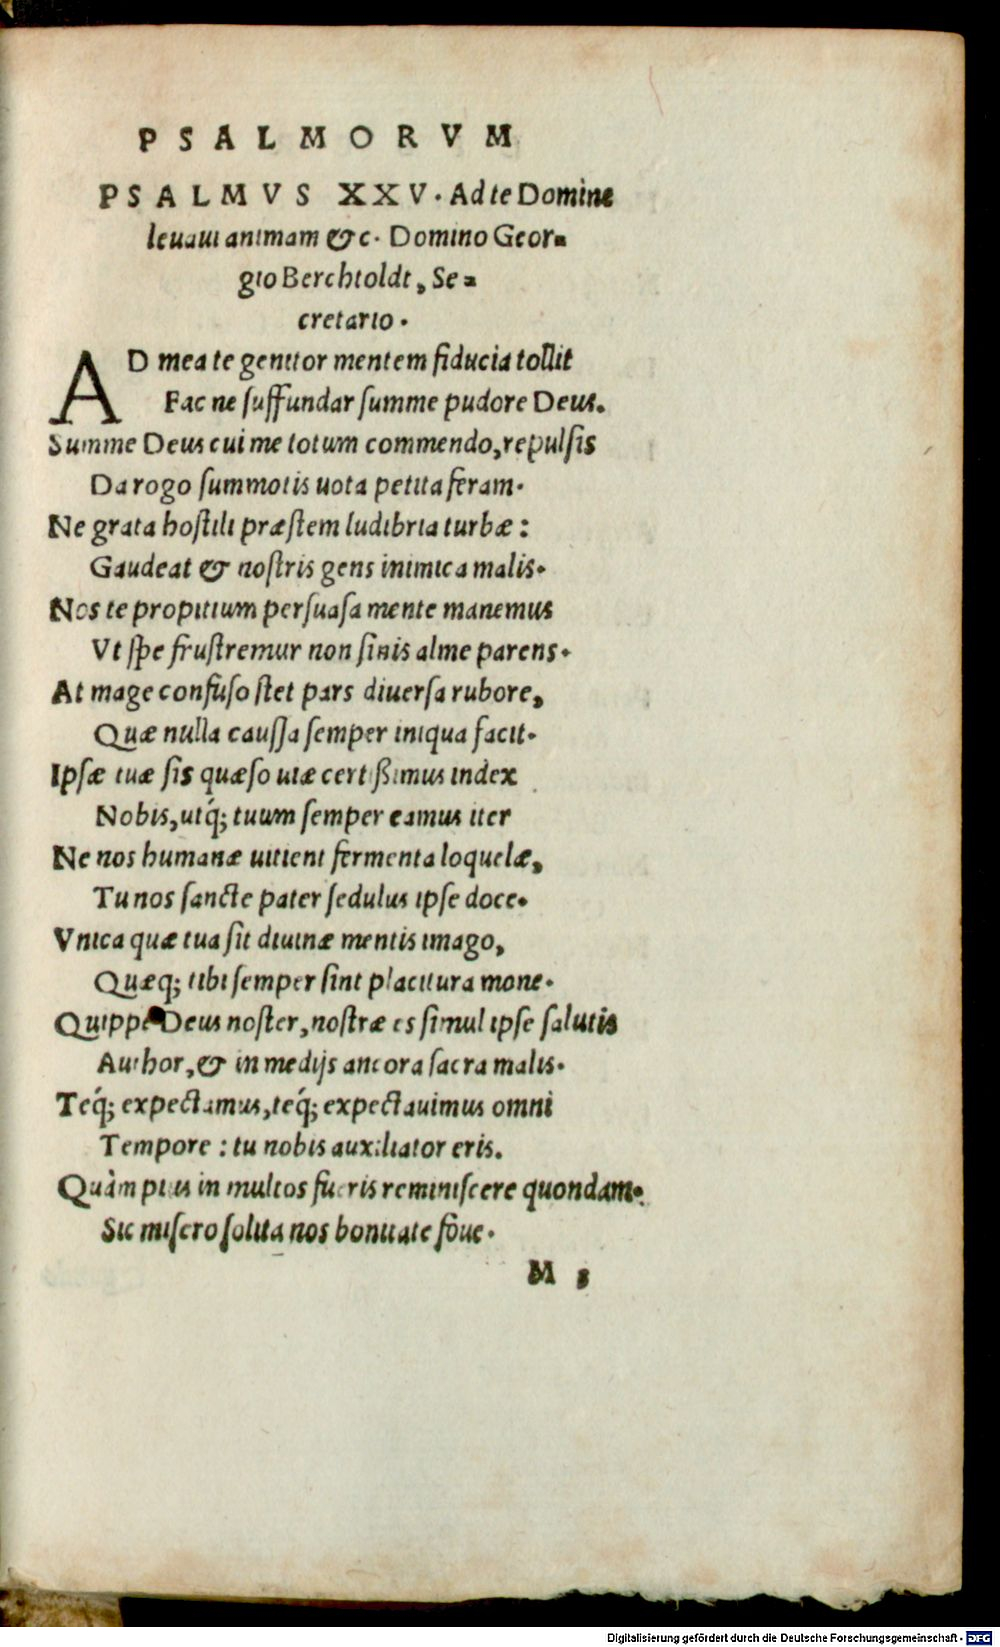 PSALMORVM
PSALMVS XXV. Ad te Domine
leuaui animam &c. Domino Geor-
gio Berchtoldt, Se-
cretario.
AD mea te genitor mentem fiducia tollit
Fac ne suffundar summe pudore Deus.
Summe Deus cui me totum commendo, repulsis
Da rogo summotis uota petita feram.
Ne grata hostili præstem ludibria turbæ:
Gaudeat & nostris gens inimica malis.
Nos te propitium persuasa mente manemus
Vt spe frustremur non sinis alme parens.
At mage confuso stet pars diuersa rubore,
Quæ nulla caussa semper iniqua facit.
Ipsæ tuæ sis quæso uiæ certißimus index
Nobis, utq́; tuum semper eamus iter
Ne nos humanæ uitient fermenta loquelæ,
Tu nos sancte pater sedulus ipse doce.
Vnica quæ tua sit diuinæ mentis imago,
Quæq; tibi semper sint placitura mone.
Quippe Deus noster, nostræ es simul ipse salutis
Author, & in medijs ancora sacra malis.
Teq́; expectamus, teq́; expectauimus omni
Tempore: tu nobis auxiliator eris.
Quàm pius in multos fueris reminiscere quondam.
Sic misero solita nos bonitate foue.
M
Digitalisierung gefördert durch die Deutsche Forschungsgemeinschaft - DFG